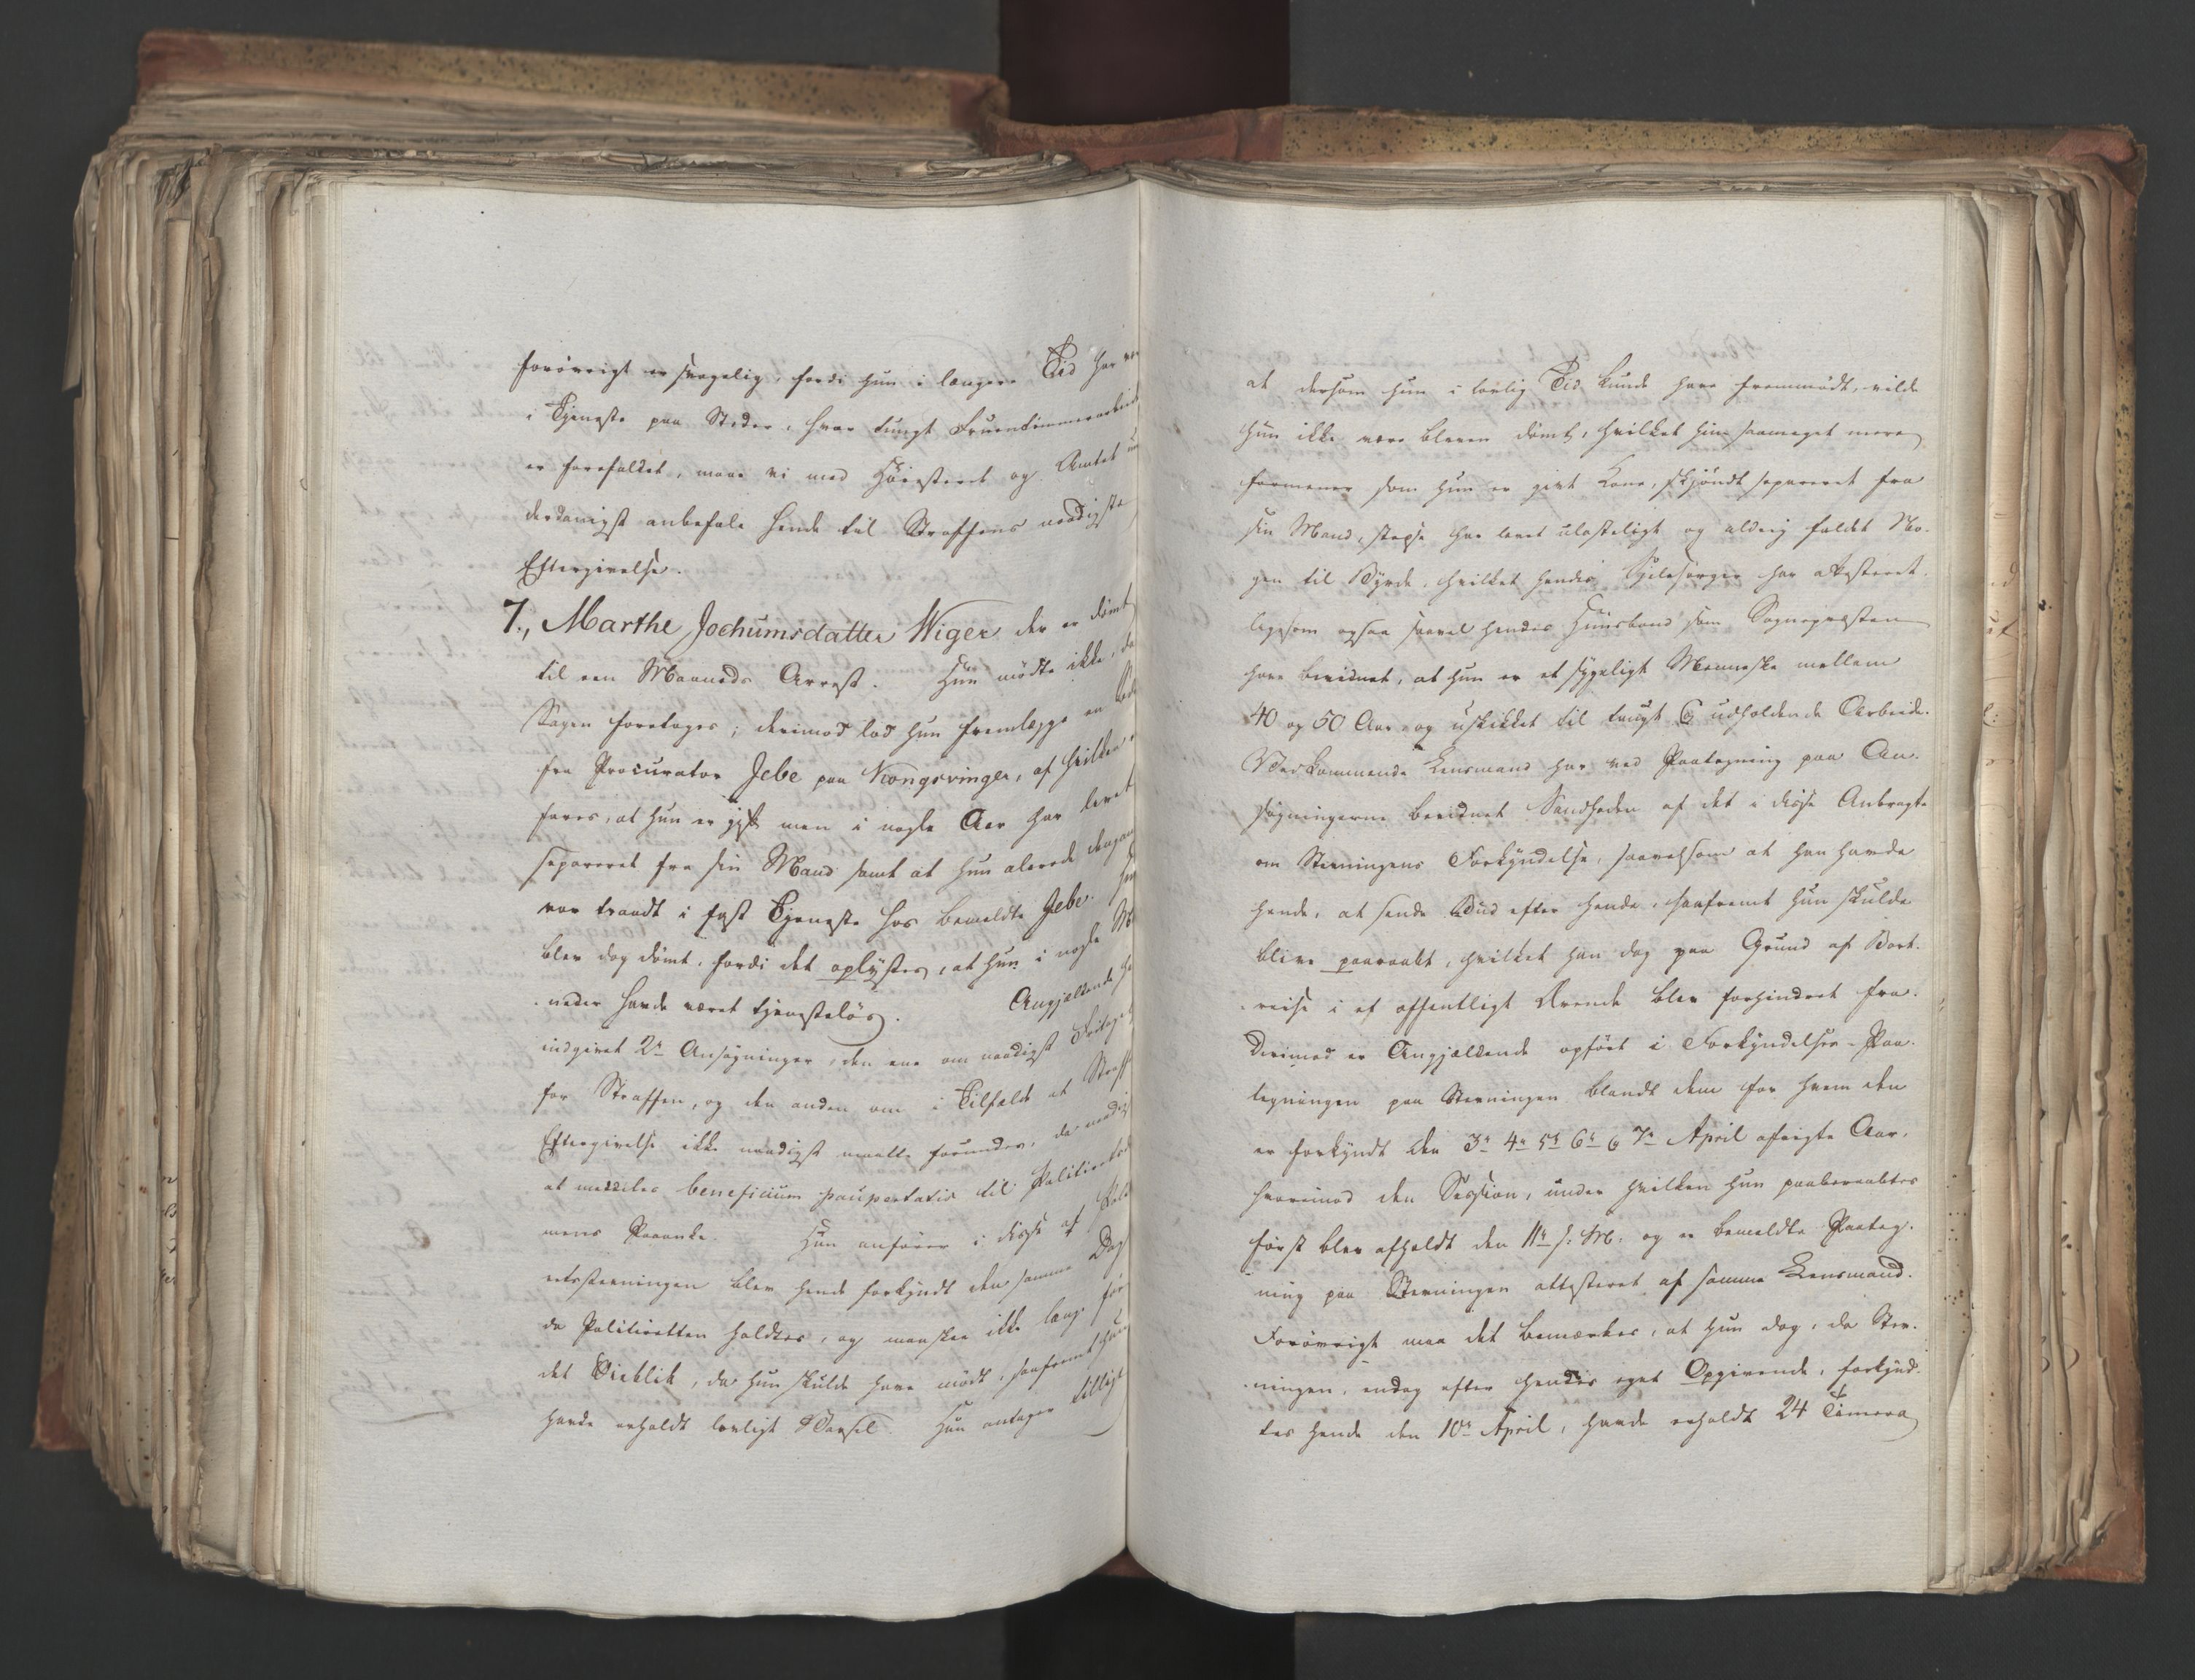 forövrigt er svagelig, fordi hun i længere Tid har
i Tjeneste paa Steder, hvor tungt Fruentimmerarbeid
er forefaldet, maae vi med Höiesteret og Amtet un
derdanigst anbefale hende til Straffens naadigste
Eftergivelse.
7., Marthe Jochumsdatter Wiger der er dömt
til een Maaneds Arrest. Hun mödte ikke, da
Sagen foretoges; derimod lod hun fremlægge en
fra Procurator Jebe paa Kongsvinger, af hvilken
föres, at hun er gift men i nogle Aar har levet
separeret fra sin Mand samt at hun alerede dengang
var traadt i fast Tjeneste hos bemeldte Jebe. Hun
blev dog dömt, fordi det oplystes, at hun i nogle Ma
neder havde været tjenestelös. Angjældende ha
indgivet 2de Ansögninger, den ene om naadigst Fritagel
for Straffen, og den anden om i Tilfælde at Straff
Eftergivelse ikke naadigst maatte forundes, da naadig
at meddeles beneficium paupertatis til Politiretsdom
mens Paaanke. Hun anförer i disse at Poli
retsstevningen blev hende forkyndt den samme Dag
da Politiretten holdtes, og maaskee ikke lang för
det Öieblik, da hun skulde have mödt, saafremt hun
havde erholdt lovligt Varsel. Hun antager tilligt
at dersom hun i lovlig Tid kunde have fremmödt, vilde
hun ikke være bleven dömt, hvilket hun saameget mere
formener som hun er givt Kone, skjöndt separeret fra
sin Mand, stedse har levet ulasteligt og aldrig faldet No-
gen til Byrde, hvilket hendes Sjelesörger har attesteret
ligesom ogsaa saavel hendes Huusbond som Sognepræsten
have bevidnet, at hun er et sygeligt Menneske mellem
40 og 50 Aar og uskikket til tungt & udholdende Arbeide.
Vedkommende Lensmand har ved Paategning paa An-
sögningerne bevidnet Sandheden af det i disse Anbragte
om Stevningens Forkyndelse, saavelsom at han havde
hende, at sende Bud efter hende, saafremt hun skulde
blive paaraabt, hvilket han dog paa Grund af Bort-
reise i et offentligt Ærende blev forhindret fra.
Derimod er Angjældende opfört i Forkyndelses-Paa-
tegningen paa Stevningen blandt dem for hvem den
er forkyndt den 3de 4de 5te 6te & 7de April afvigte Aar,
hvorimod den Session, under hvilken hun paaberaabtes
först blev afholdt den 11te s: M: og er bemeldte Paateg-
ning paa Stevningen attesteret af samme Lensmand.
Forövrigt maa det bemærkes, at hun dog, da Stev-
ningen, endog efter hendes eget Opgivende, forkynd-
tes hende den 10de April, havde erholdt 24 Timers